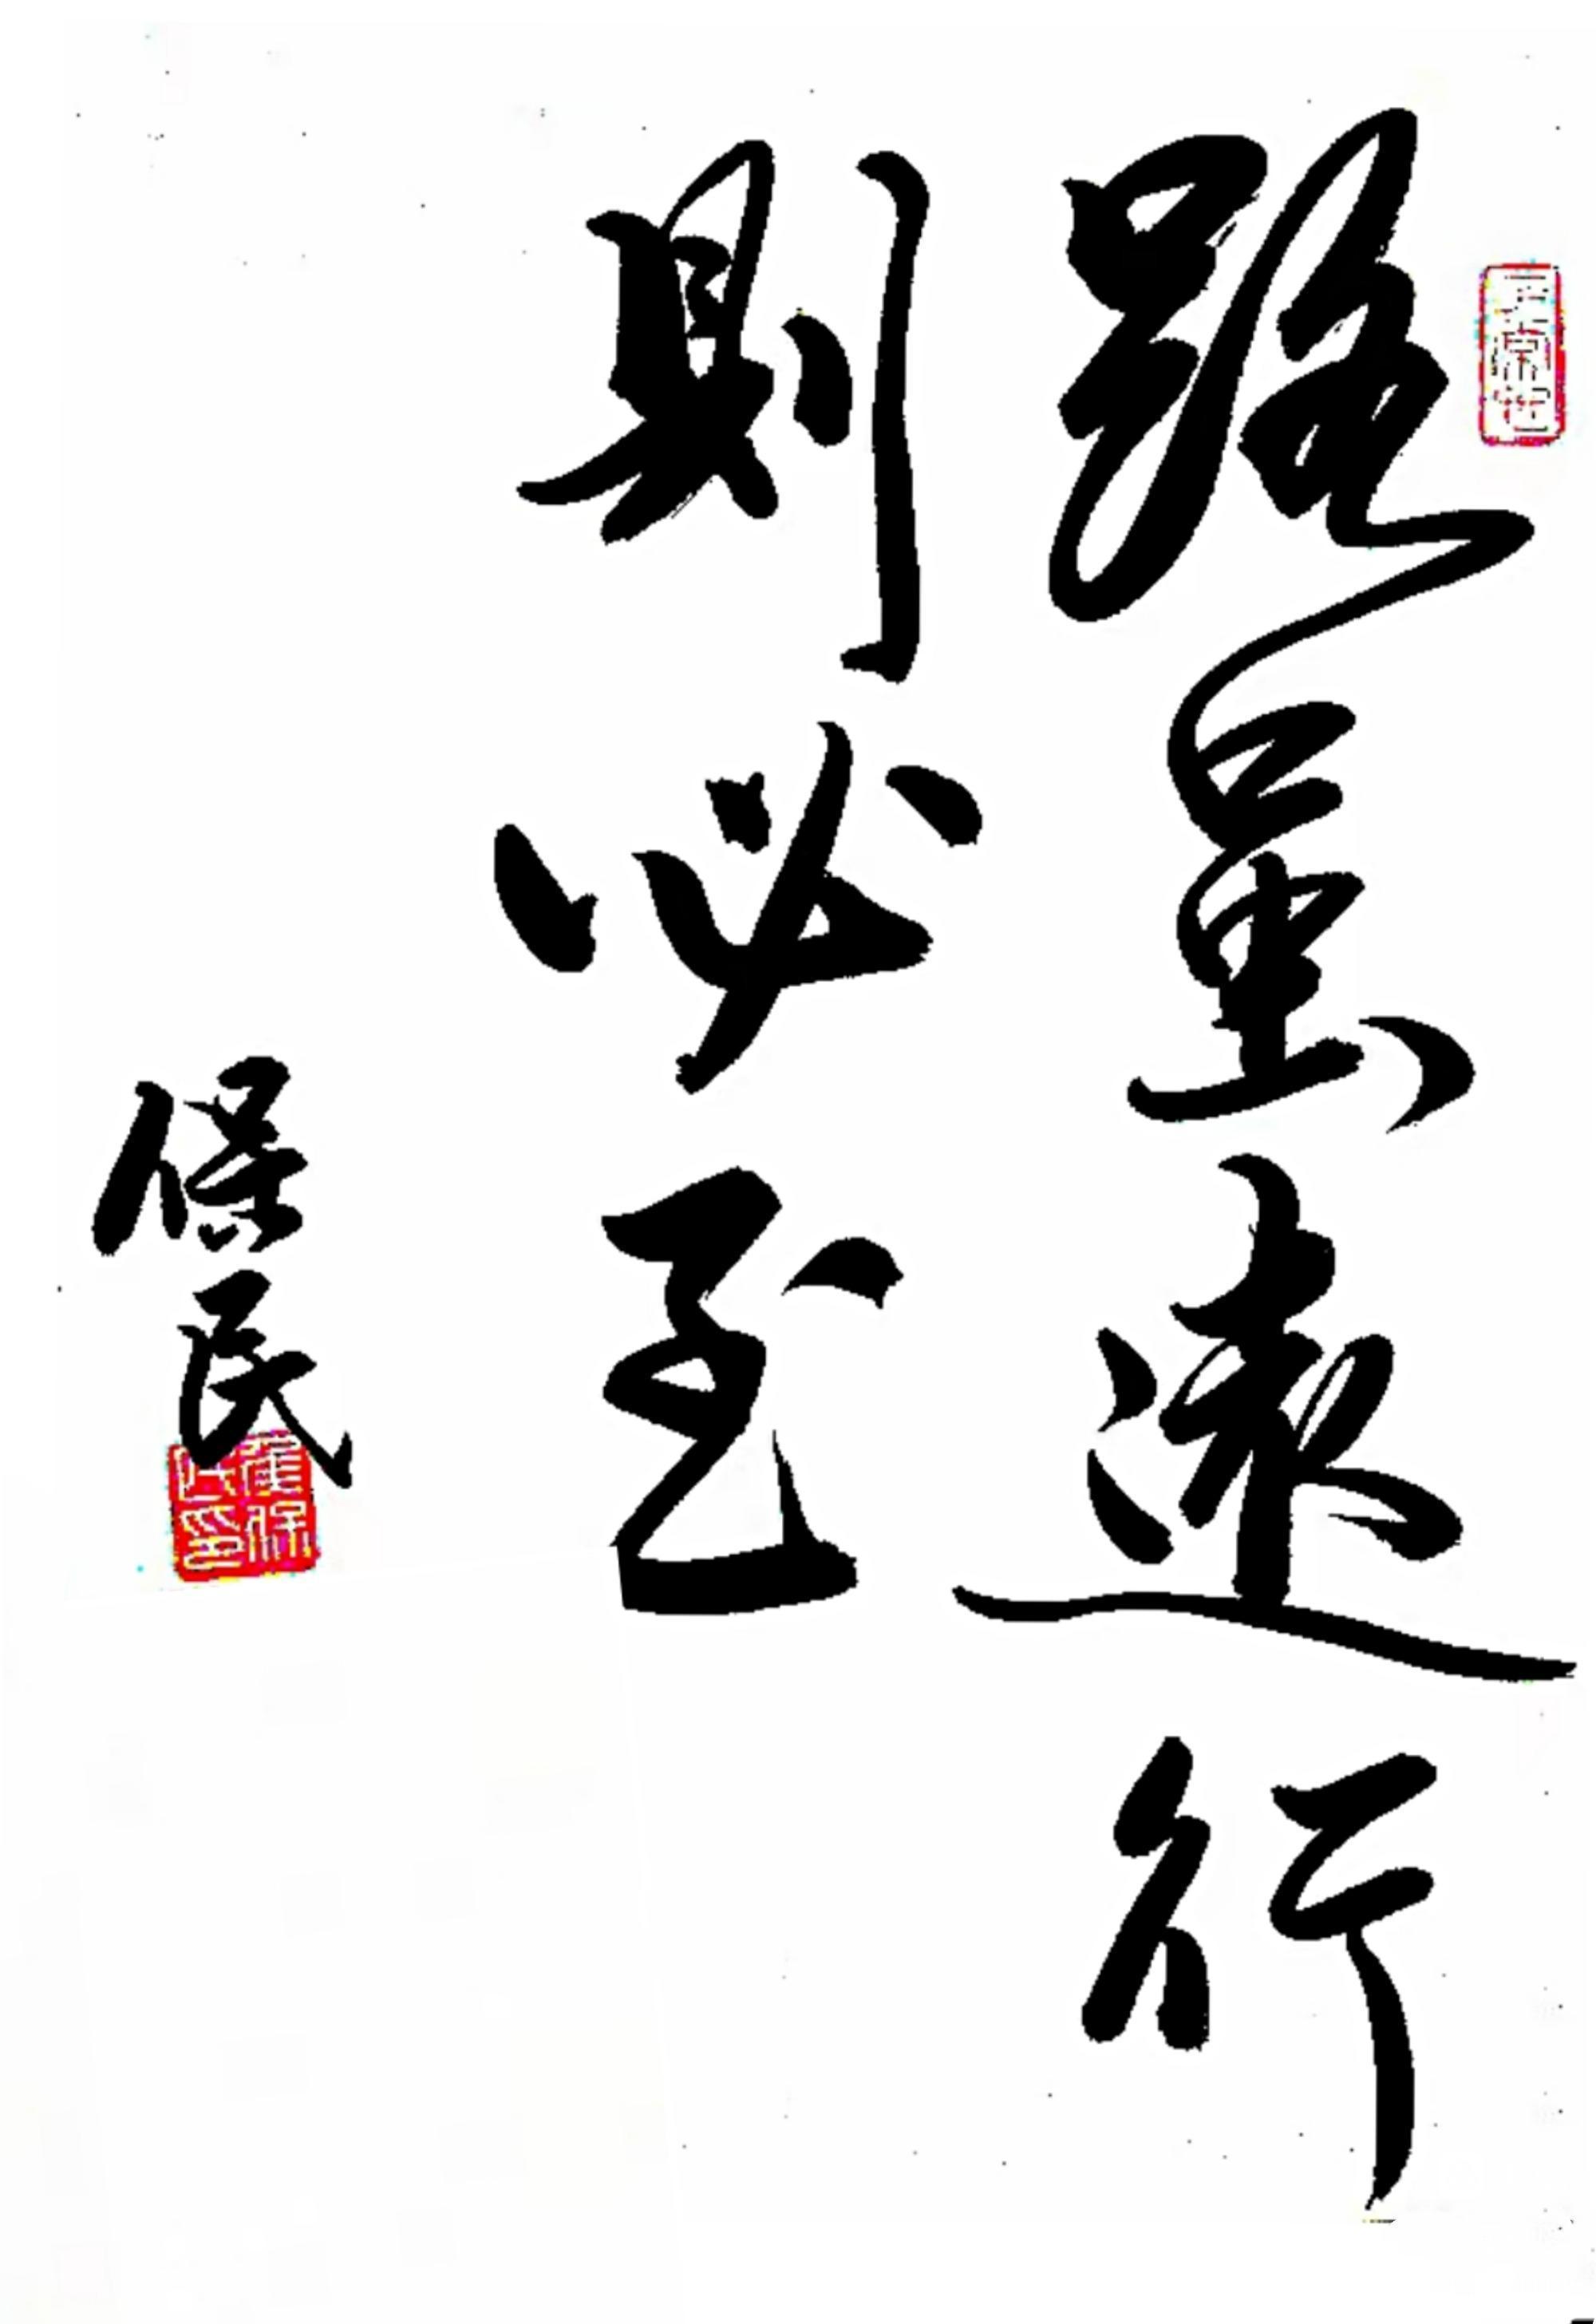 路虽远行
则必至
保民
崔保民印